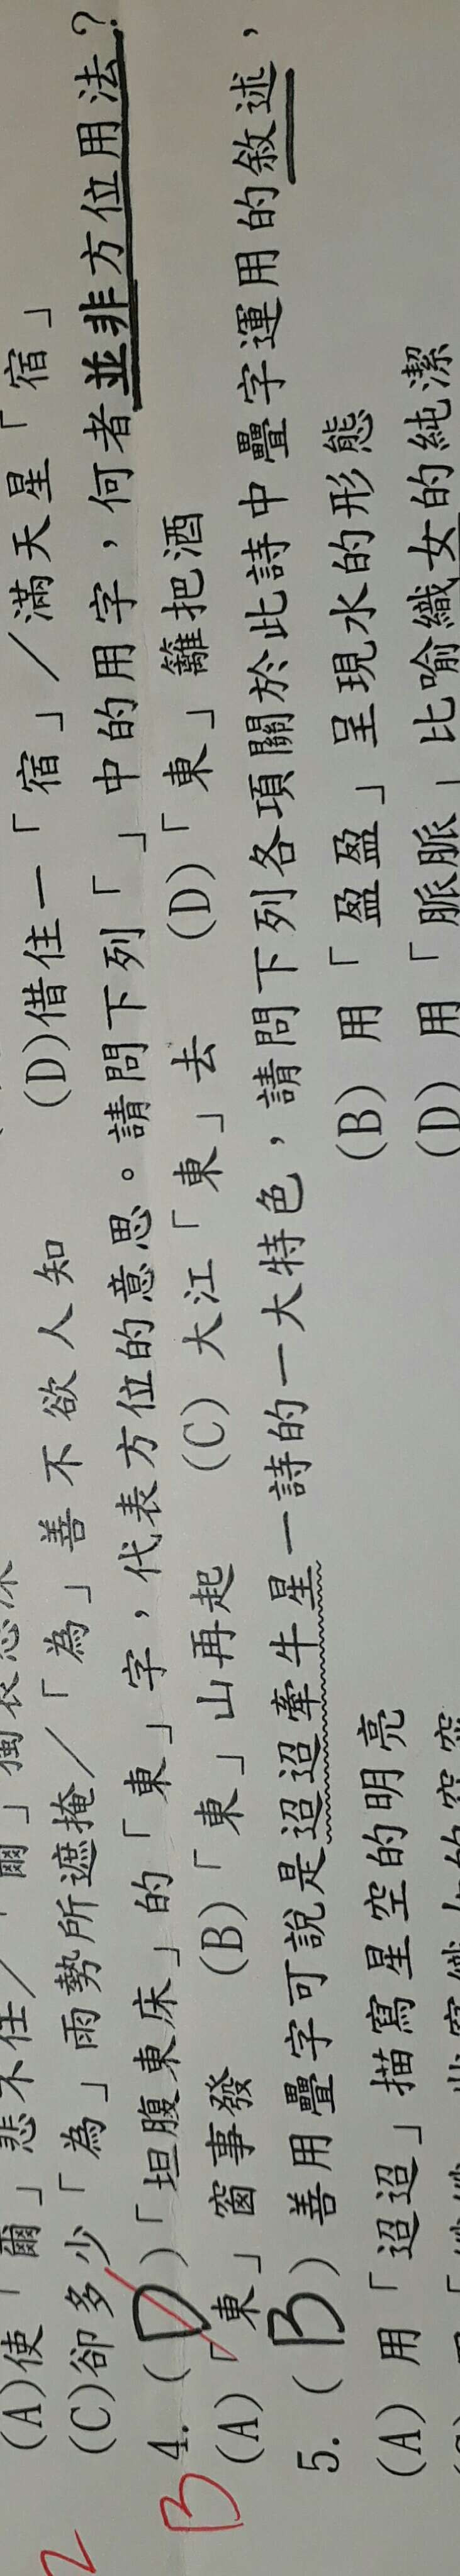 (A)使「爾」悲不任/「爾」獨衣
(C)卻多少「為」雨勢所遮掩/「為」善不欲人知 (D)借住一「宿」/滿天星「宿」
B 4. (D)「坦腹東床」的「東」字,代表方位的意思。請問下列「 」中的用字,何者並非方位用法?
(A)「東」窗事發 (B)「東」山再起 (C)大江「東」去 (D)「東」籬把酒
5. (B) 善用疊字可說是迢迢牽牛星一詩的一大特色,請問下列各項關於此詩中疊字運用的敘述,
(A) 用「迢迢」描寫星空的明亮 (B) 用「盈盈」呈現水的形態
(D) 用「脈脈」比喻織女的純潔